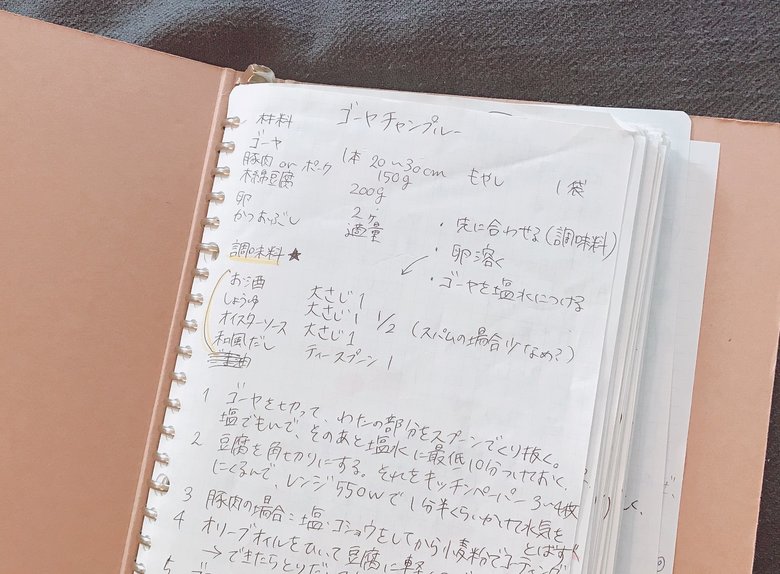 ゴーヤチャンプルー
材料
ゴーヤ 1本 20〜30cm もやし 1袋
豚肉 or ポーク 150g
木綿豆腐 200g
卵 2ヶ
かつおぶし 適量
・先に合わせる(調味料)
・卵溶く
・ゴーヤを塩水につける
調味料★
お酒 大さじ1
しょうゆ 大さじ1 1/2 (スパムの場合少なめ?)
オイスターソース 大さじ1
和風だし ティースプーン1
1 ゴーヤを切って、わたの部分をスプーンでくり抜く。
塩でもんで、そのあと塩水に最低10分つけておく。
2 豆腐を角切りにする。それをキッチンペーパー3〜4枚
にくるんで、レンジ550wで1分半くらいかけて水気を
とばす
3 豚肉の場合:塩・コショウをしてから小麦粉でコーティング
4 オリーブオイルをひいて豆腐に軽く
→できたらとりだ
5 ゴ